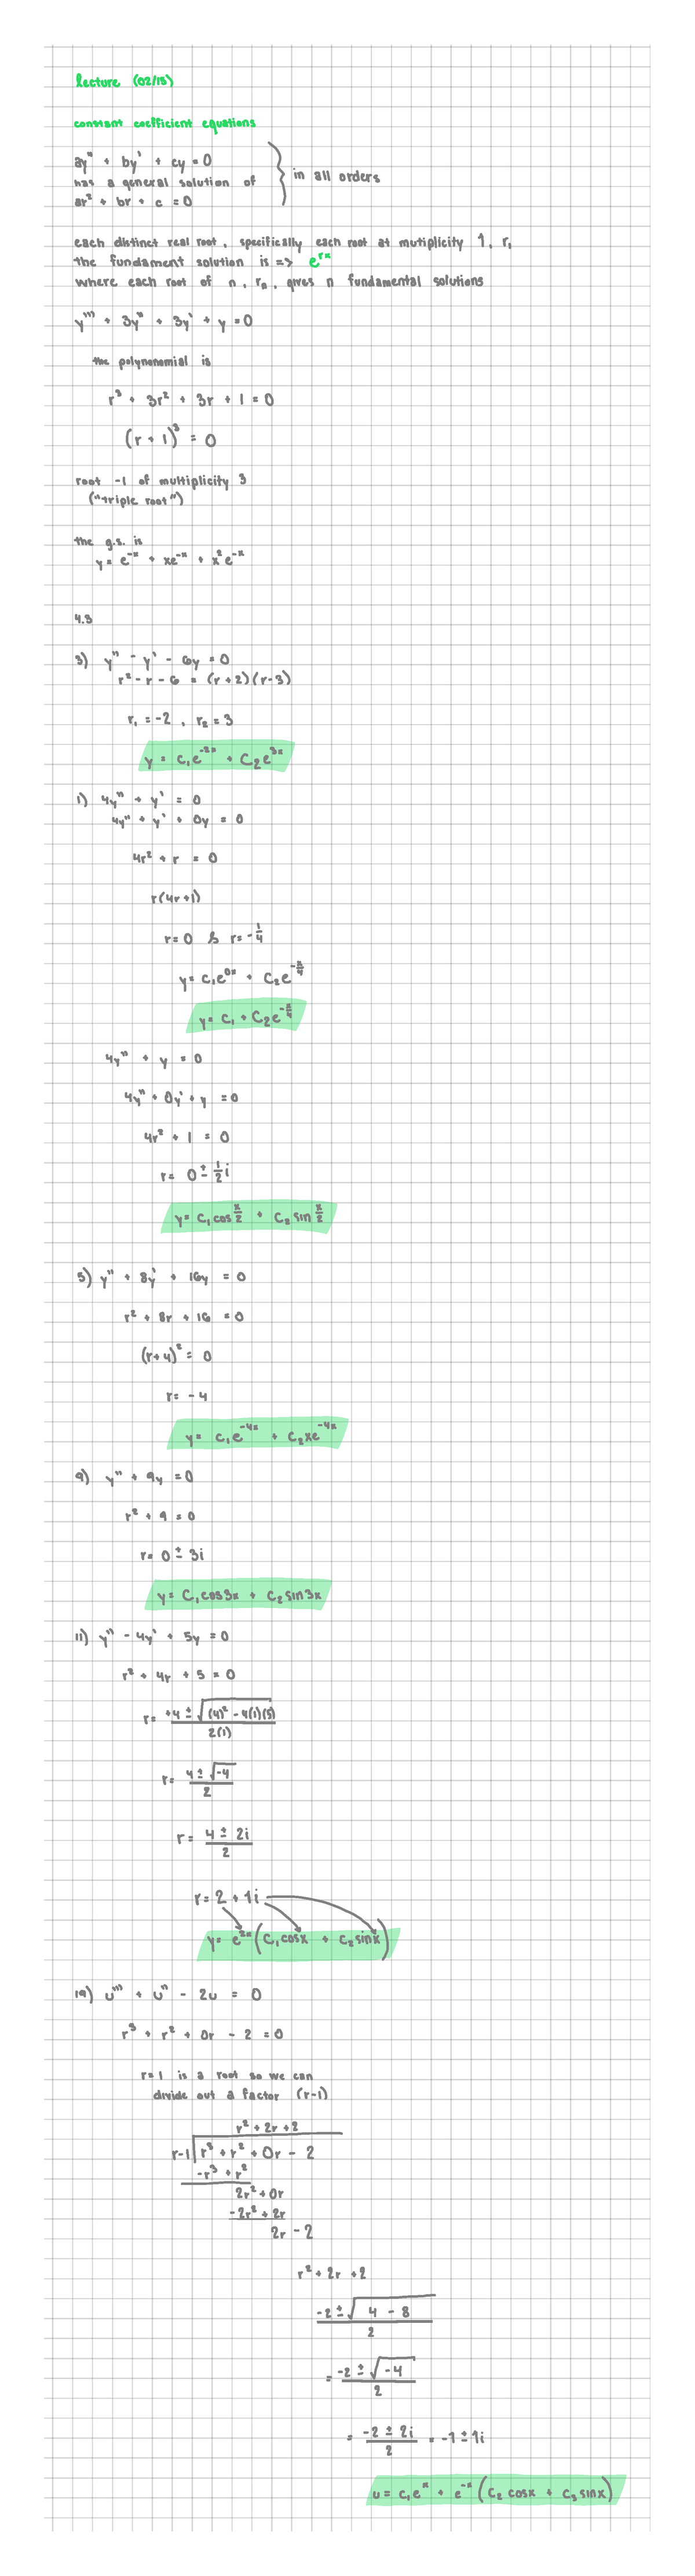 lecture (02/15)
constant coefficient equations
ay" + by' + cy = 0
has a general solution of
ar² + br + c = 0
in all orders
each distinct real root, specifically each root at mutiplicity 1, r,
the fundament solution is => e^rx
where each root of n, rₙ, gives n fundamental solutions
y''' + 3y" + 3y' + y = 0
the polynonomial is
r³ + 3r² + 3r + 1 = 0
(r + 1)³ = 0
root -1 of multiplicity 3
("triple root")
the g.s. is
y = e^-x + xe^-x + x²e^-x
4.3
3) y" - y' - 6y = 0
r² - r - 6 = (r+2)(r-3)
r₁ = -2, r₂ = 3
y = c₁e^-2x + C₂e^3x
1) 4y" + y' = 0
4y" + y' + 0y = 0
4r² + r = 0
r(4r+1)
r=0 & r=-1/4
y = c₁e^0x + C₂e^-x/4
y = c₁ + C₂e^-x/4
4y" + y = 0
4y" + 0y' + y = 0
4r² + 1 = 0
r = 0 ± 1/2 i
y = C₁ cos x/2 + C₂ sin x/2
5) y" + 8y' + 16y = 0
r² + 8r + 16 = 0
(r+4)² = 0
r = -4
y = c₁e^-4x + C₂xe^-4x
9) y" + 9y = 0
r² + 9 = 0
r = 0 ± 3i
y = C₁cos3x + C₂sin3x
11) y" - 4y' + 5y = 0
r² + 4r + 5 = 0
r = +4 ± √(4)² - 4(1)(5) / 2(1)
r = 4 ± √-4 / 2
r = 4 ± 2i / 2
r = 2 + 1i
y = e^2x (C₁cosx + C₂sinx)
19) u''' + u" - 2u = 0
r³ + r² + 0r - 2 = 0
r=1 is a root so we can
divide out a factor (r-1)
r² + 2r + 2
r-1 r³ + r² + 0r - 2
-r³ + r²
2r² + 0r
-2r² + 2r
2r - 2
r² + 2r + 2
-2 ± √4 - 8 / 2
= -2 ± √-4 / 2
= -2 ± 2i / 2 = -1 ± 1i
u = c₁e^x + e^-x (C₂ cosx + C₃ sinx)